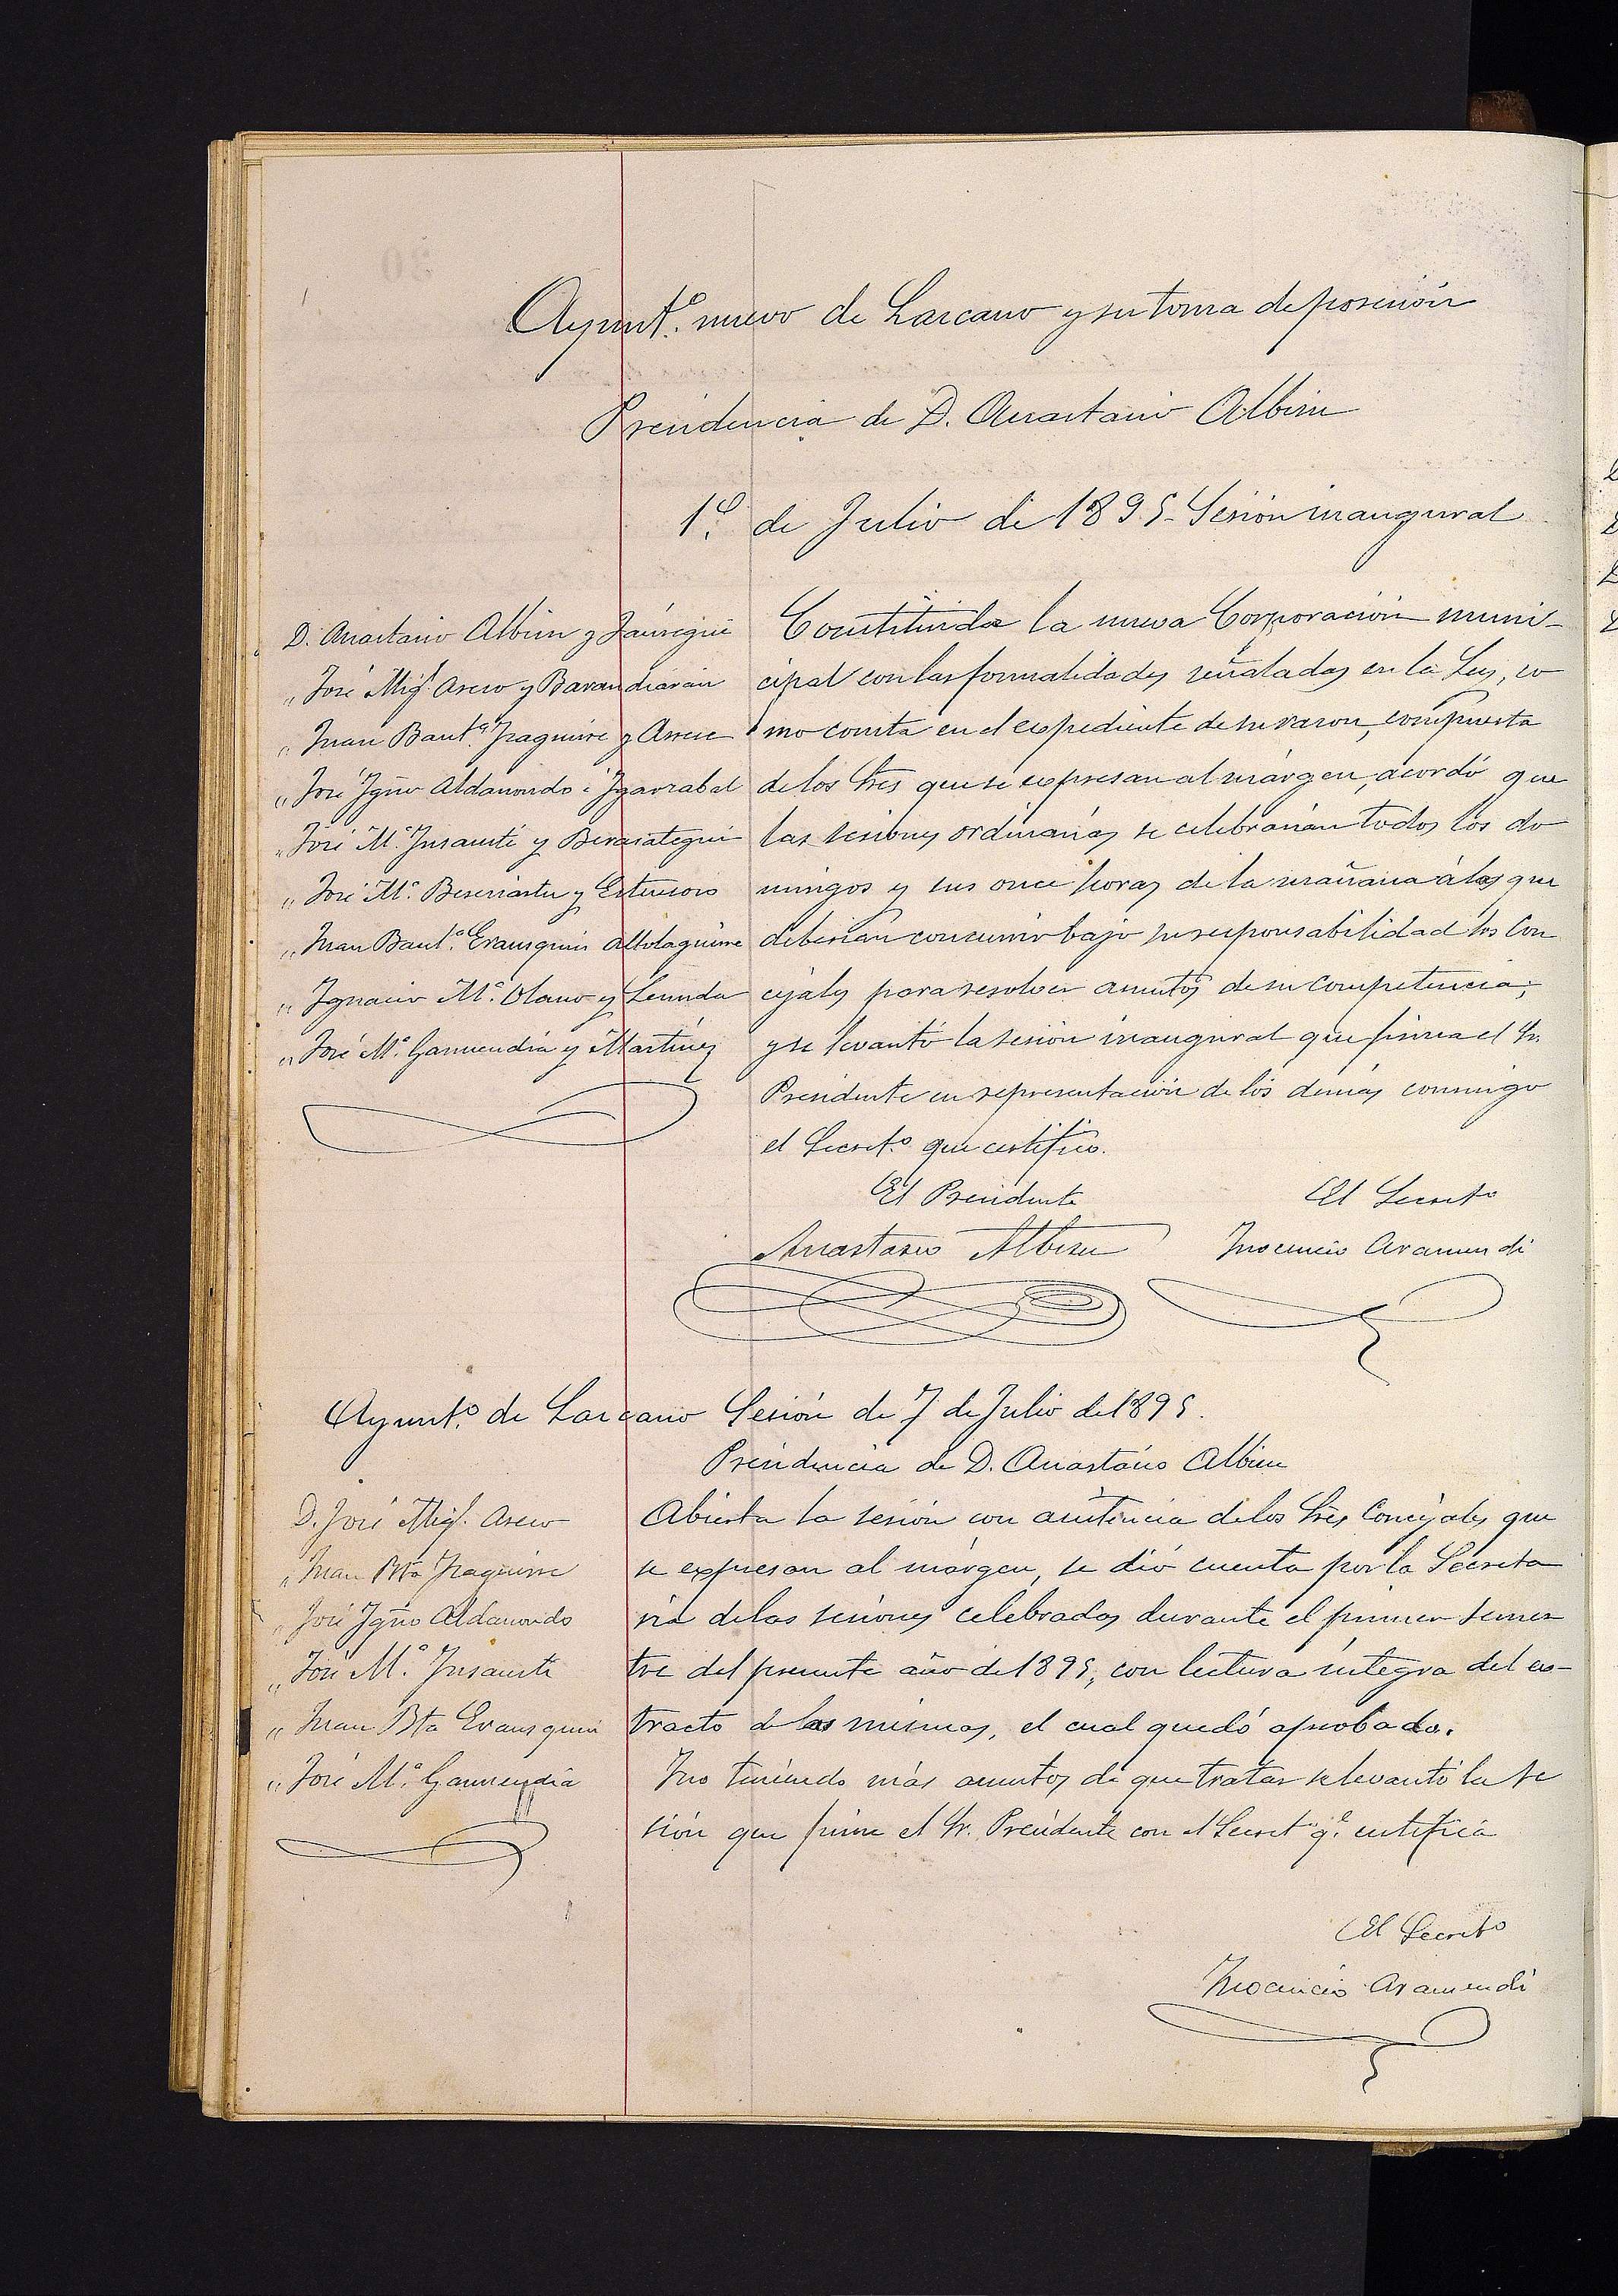 Ayunt.º nuevo de Lazcano y su toma de posesión
Presidencia de D. Anastasio Albisu
1.º de Julio de 1895 - Sesión inaugural
D. Anastasio Albisu y Jáuregui
„ José Mig.l Aseso y Barandiarán
„ Juan Baut.a Iraguirre y Arrese
„ José Ygn.o Aldanondo é Ygarzabal
„ José M.a Insausti y Berasategui
„ José M.a Beseriartu y
„ Juan Baut.a Erausquin Altolaguirre
„ Ignacio M.a Olano y Leunda
„ José M.a Garmendia y Martinez
Constituida la nueva Corporación muni-
cipal con las formalidades señaladas en la Ley, co
mo consta en el expediente de su razon, compuesta
de los Sres que se expresan al márgen, acordó que
las sesiones ordinarias se celebrarían todos los do
mingos y sus once horas de la mañana á las que
deberían concurrir bajo su responsabilidad los Con
cejales para resolver asuntos de su competencia;
y se levantó la sesión inaugural que firma el Sr.
Presidente en representación de los demás conmigo
el Secret.º que certifico.
El Presidente
El Secret.º
Anastasio Albisu
Inocencio Aramendi
Ayunt.º de Lazcano Sesión de 7 de Julio de 1895.
Presidencia de D. Anastásio Albisu
D. José Mig.l Aseso
„ Juan Bta Iraguirre
„ José Ygño Aldanondo
„ José M.a Insausti
„ Juan Bta Erausquin
„ José M.a Garmendia
Abierta la sesión con asistencia de los Sres Concejales que
se expresan al márgen, se dió cuenta por la Secreta
ria de las sesiones celebradas durante el primer semes
tre del presente año de 1895, con lectura íntegra del es-
tracto de las mismas, el cual quedó aprobado.
Y no teniendo más asuntos de que tratar se levantó la se
sión que firma el Sr. Presidente con el Secret.º q.e certifica
El Secret.º
Inocencio Aramendi